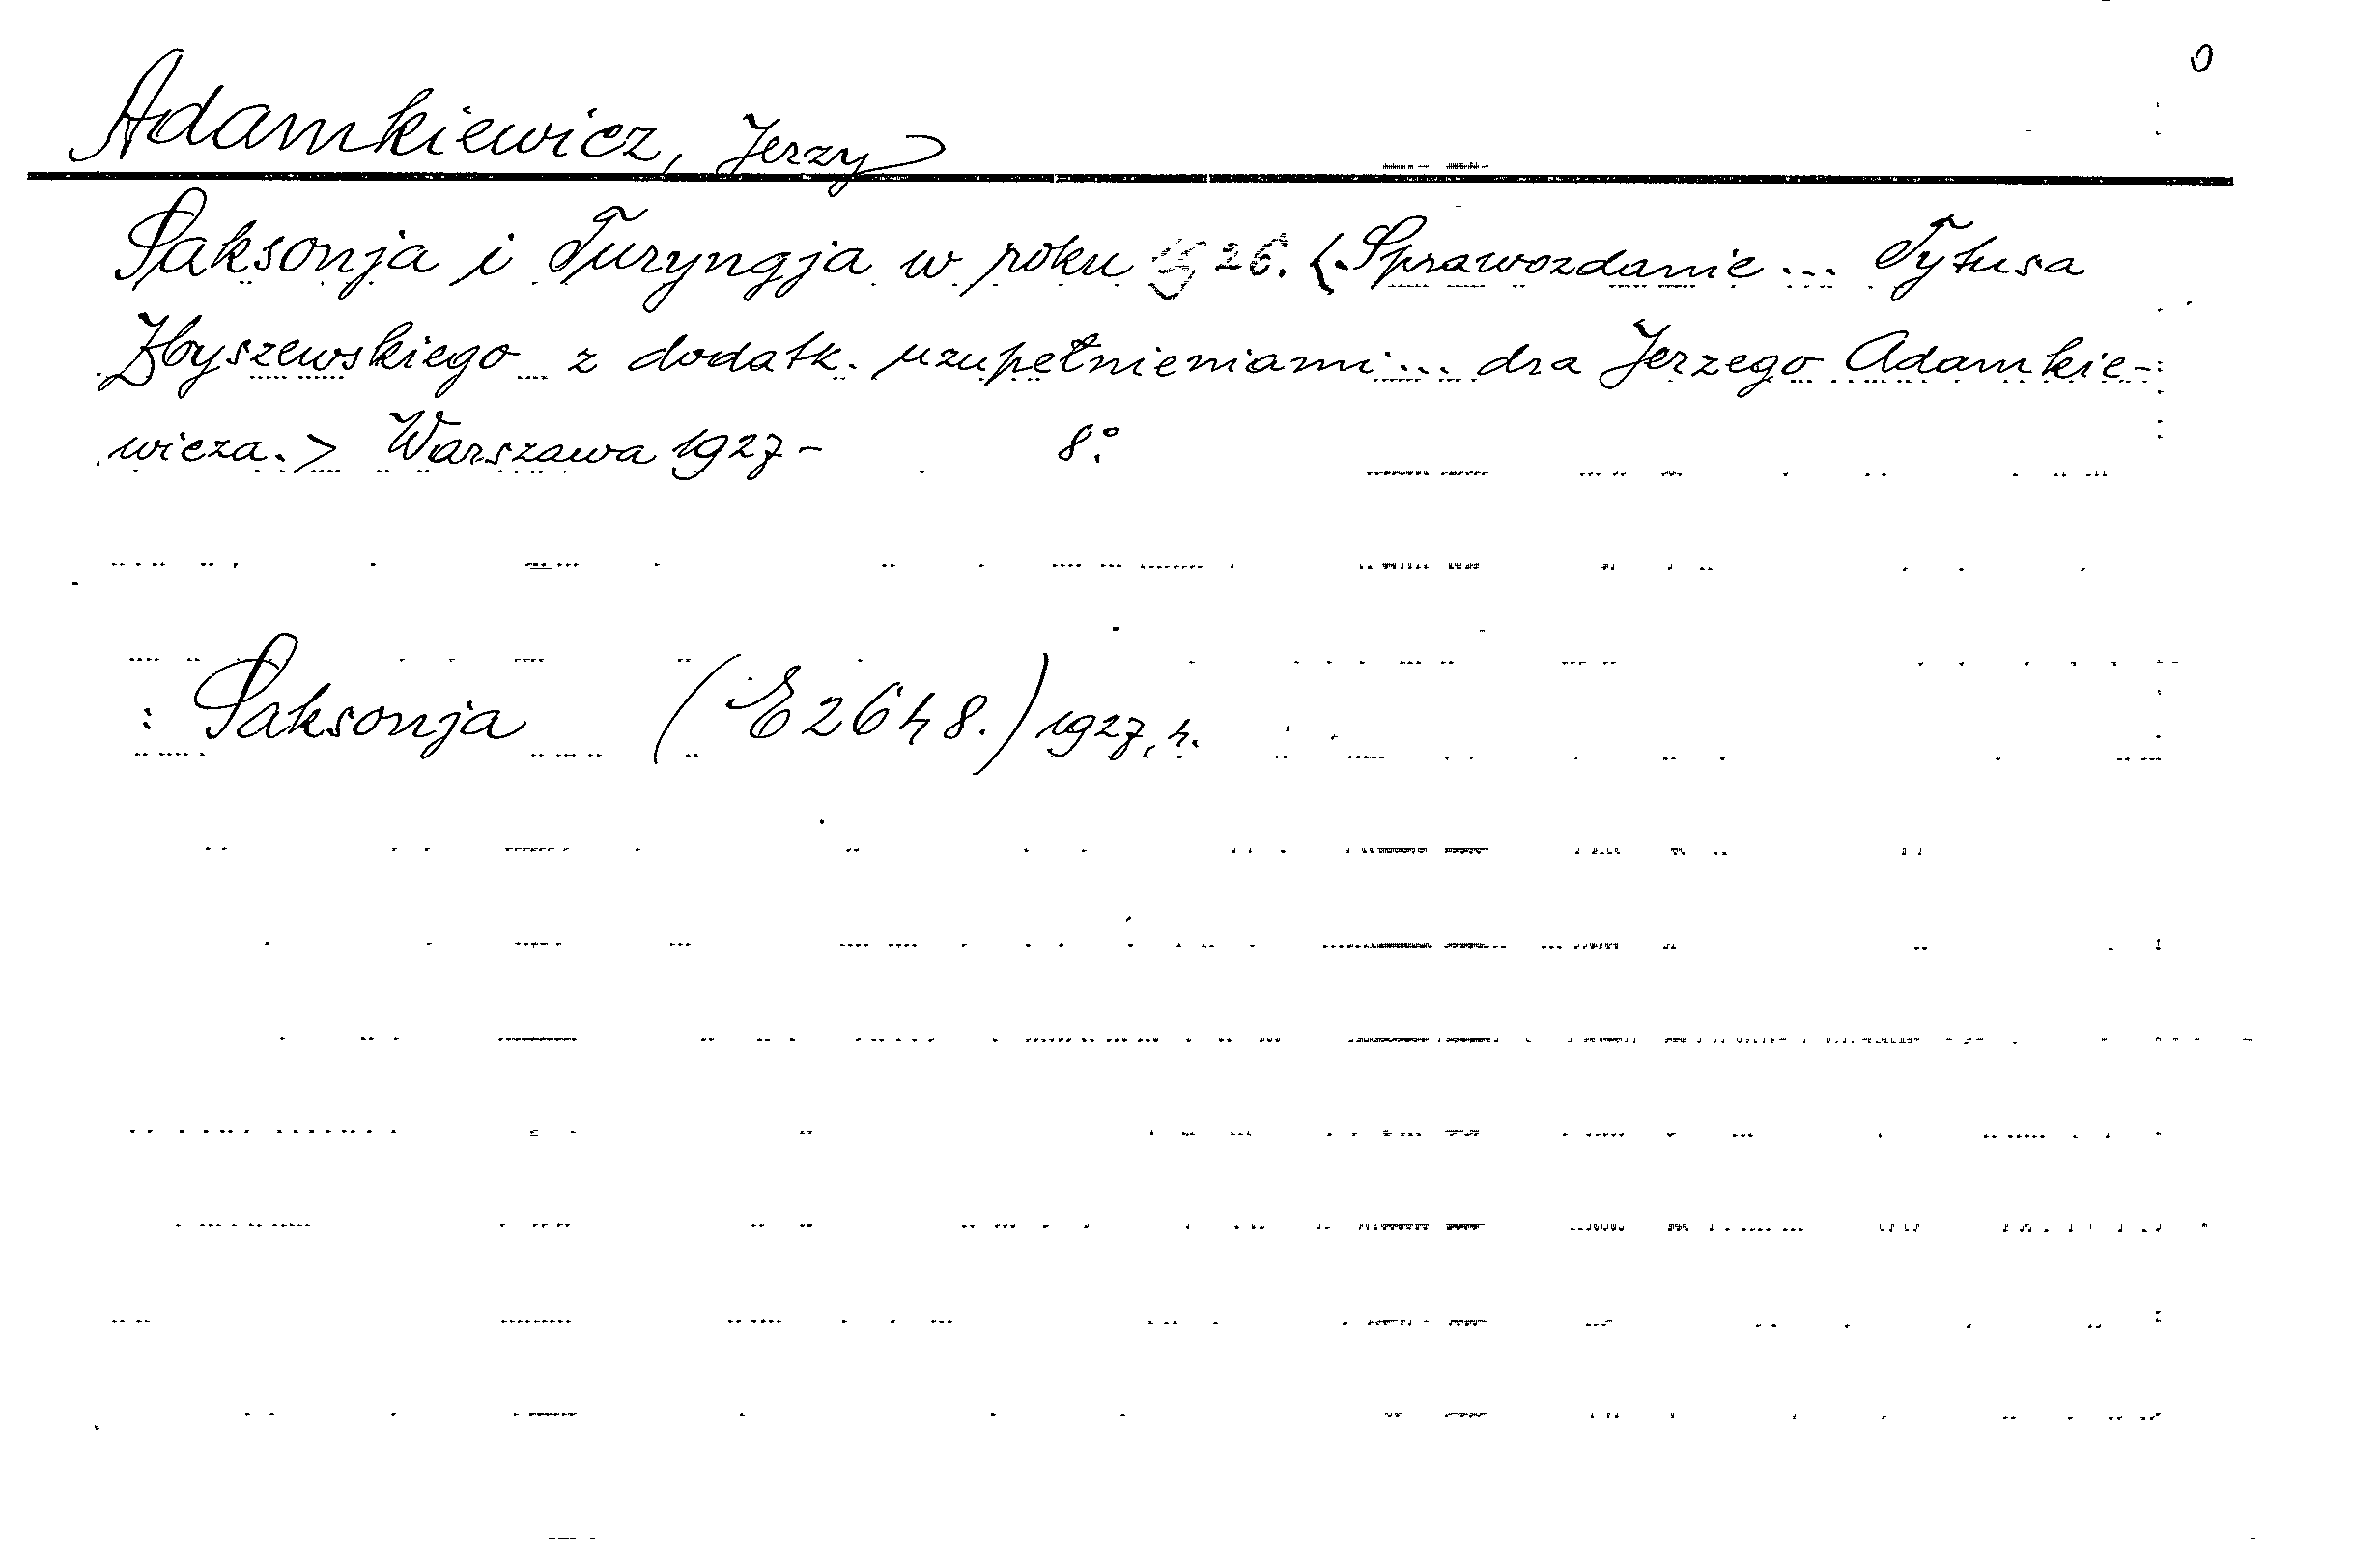 0
Adamkiewicz, Jerzy
Saksonja i Turyngja w roku 1926. <Sprawozdanie... Tytusa
Zbyszewskiego z dodatk. uzupełnieniami... dra Jerzego Adamkie-
wicza.> Warszawa 1927- 8°.
: Saksonja (E 2648.) 1927, 4.